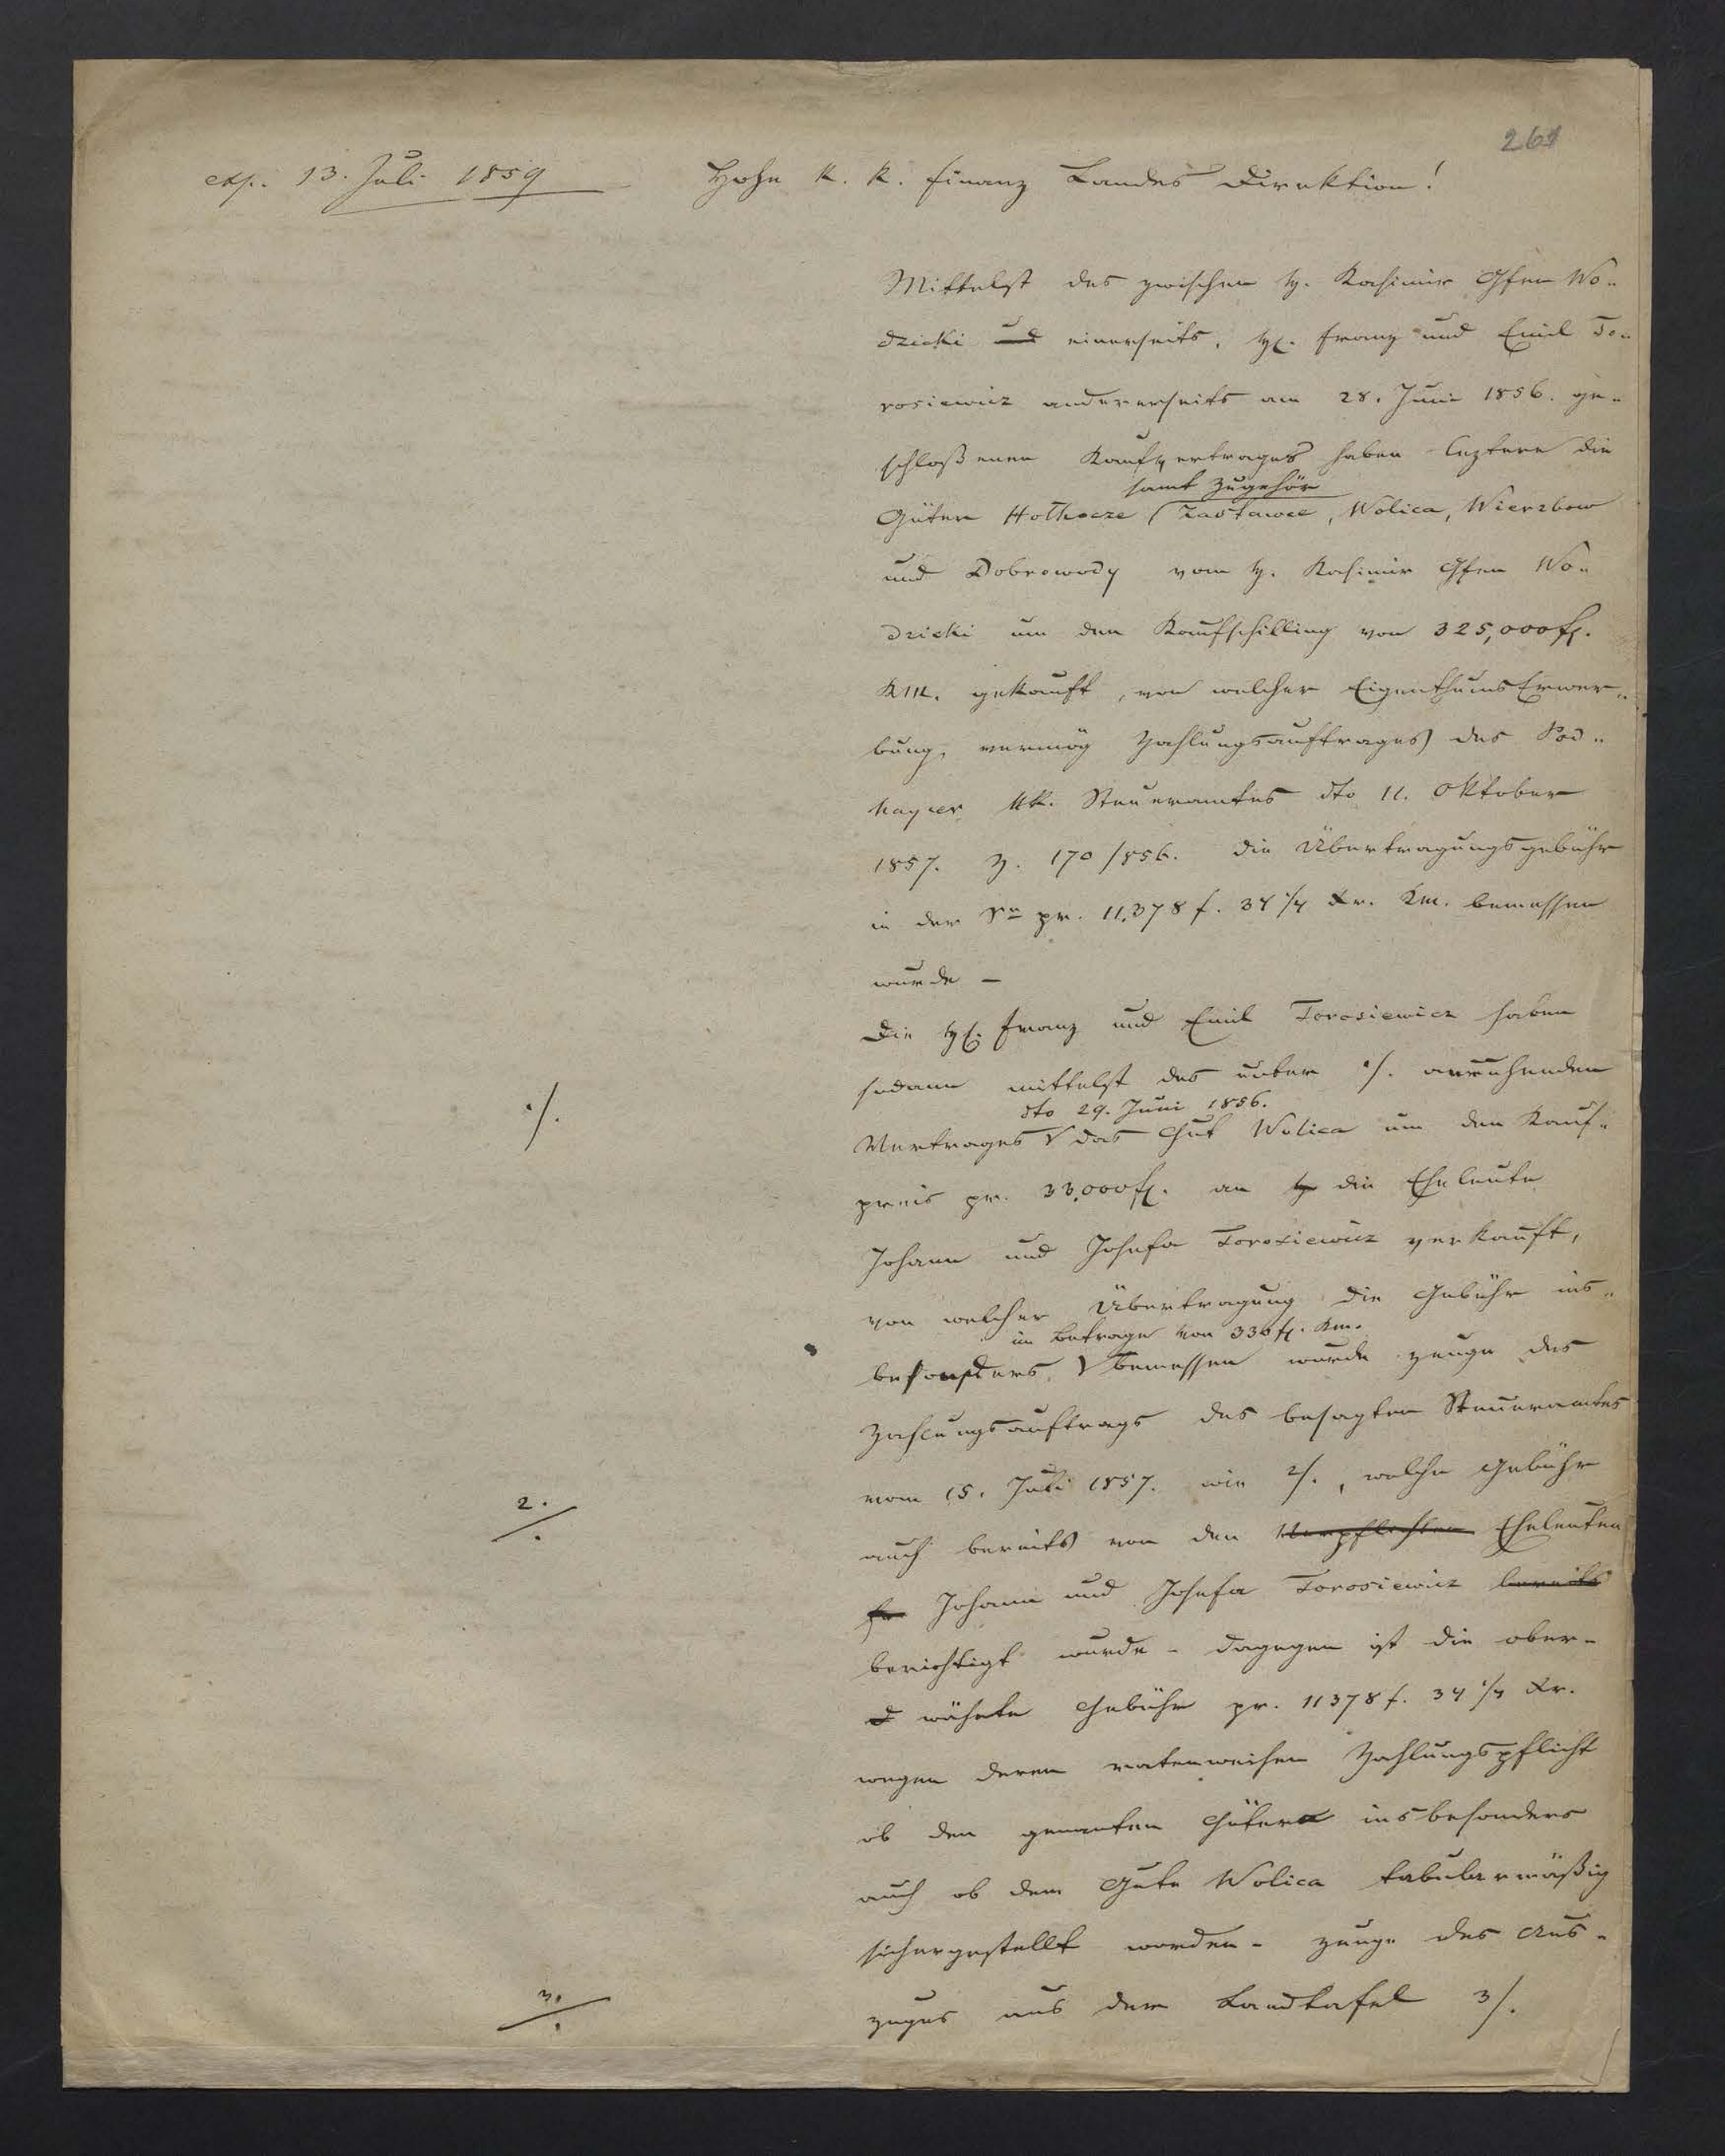 261
exp. 13. Juli 1859
Hohe k. k. Finanz Landes Direktion!
Mittelst des zwischen H. Kasimir Gfen Wo-
dzicki und einerseits, H. Franz und Emil To-
rosiewicz andererseits am 28. Juni 1856. ge-
schloßenen Kaufvertrages haben leztere die
samt Zugehör
Güter Hołhocze (Zastawce, Wolica, Wierzbow
und Dobrowody vom H. Kasimir Gfen Wo-
dzicki um den Kaufschilling von 325,000 f.
KM. gekauft, von welcher Eigenthums Erwer-
bung, vermög Zahlungsauftrages des Pod-
haycer kk. Steueramtes dto 11. Oktober
1857. Z. 170/856. die Übertragungsgebühr
in der pr. 11,378 f. 34 1/4 Xr. Km. bemessen
wurde –
Die H. Franz und Emil Torosiewicz haben
sodann mittelst des unter ·/. anruhenden
·/.
dto 29. Juni 1856.
Vertrages das Gut Wolica um den Kauf-
preis pr. 33,000 f. an H die Eheleute
Johann und Josefa Torosiewicz verkauft,
von welcher Übertragung die Gebühr ins-
im Betrage von 330 f. Km.
besonders bemessen wurde zeuge des
Zahlungsauftrags des besagten Steueramtes
vom 15. Juli 1857. wie 2/., welche Gebühr
2./.
auch bereits von den Verpflichten Eheleuten
Johann und Josefa Torosiewicz bereits
berichtigt wurde – dagegen ist die ober-
d wähnte Gebühr pr. 11378 f. 34 1/4 Xr.
wegen deren ratenweisen Zahlungspflicht
ob den genanten Gütern insbesonders
auch ob dem Gute Wolica tabularmäßig
sichergestellt worden – zeuge des Aus-
zuges aus der Landtafel 3/.
3./.